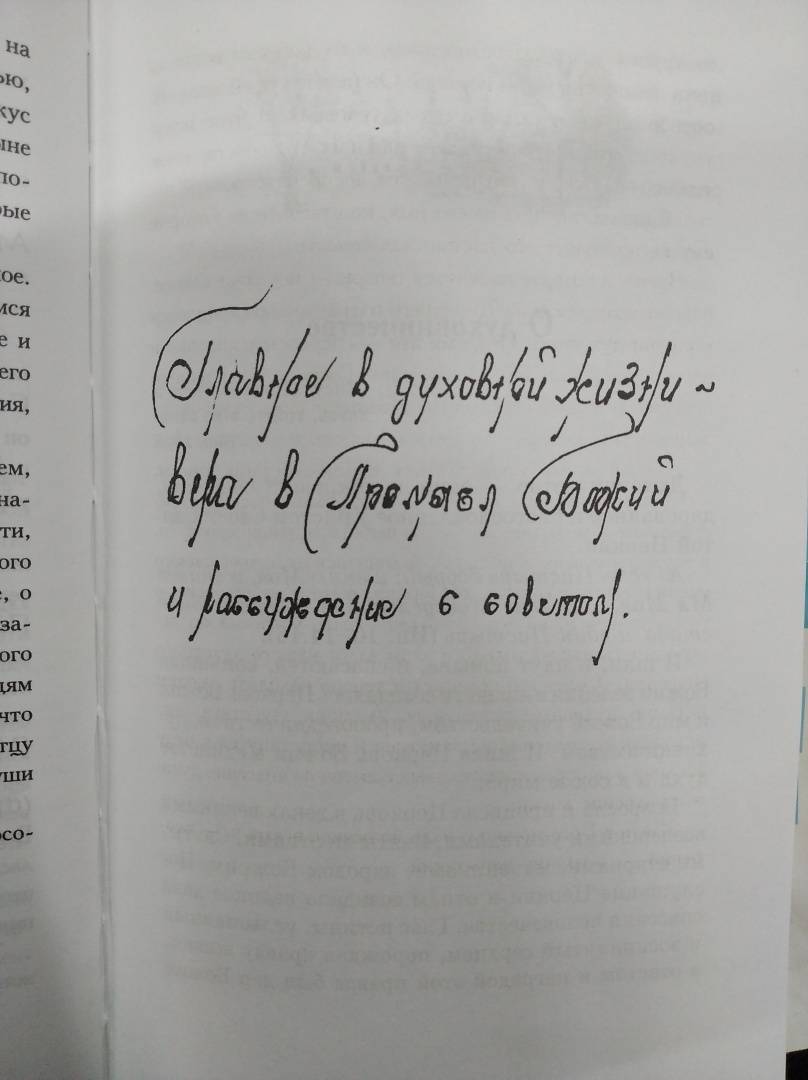 на
ью,
кус
ыне
по-
рые
ое.
мся
е и
его
ия,
ем,
на-
ти,
ого
е, о
за-
ого
дям
что
тцу
уши
осо-
Главное в духовной жизни ~
вера в Промысл Божий
и рассуждение с советом.